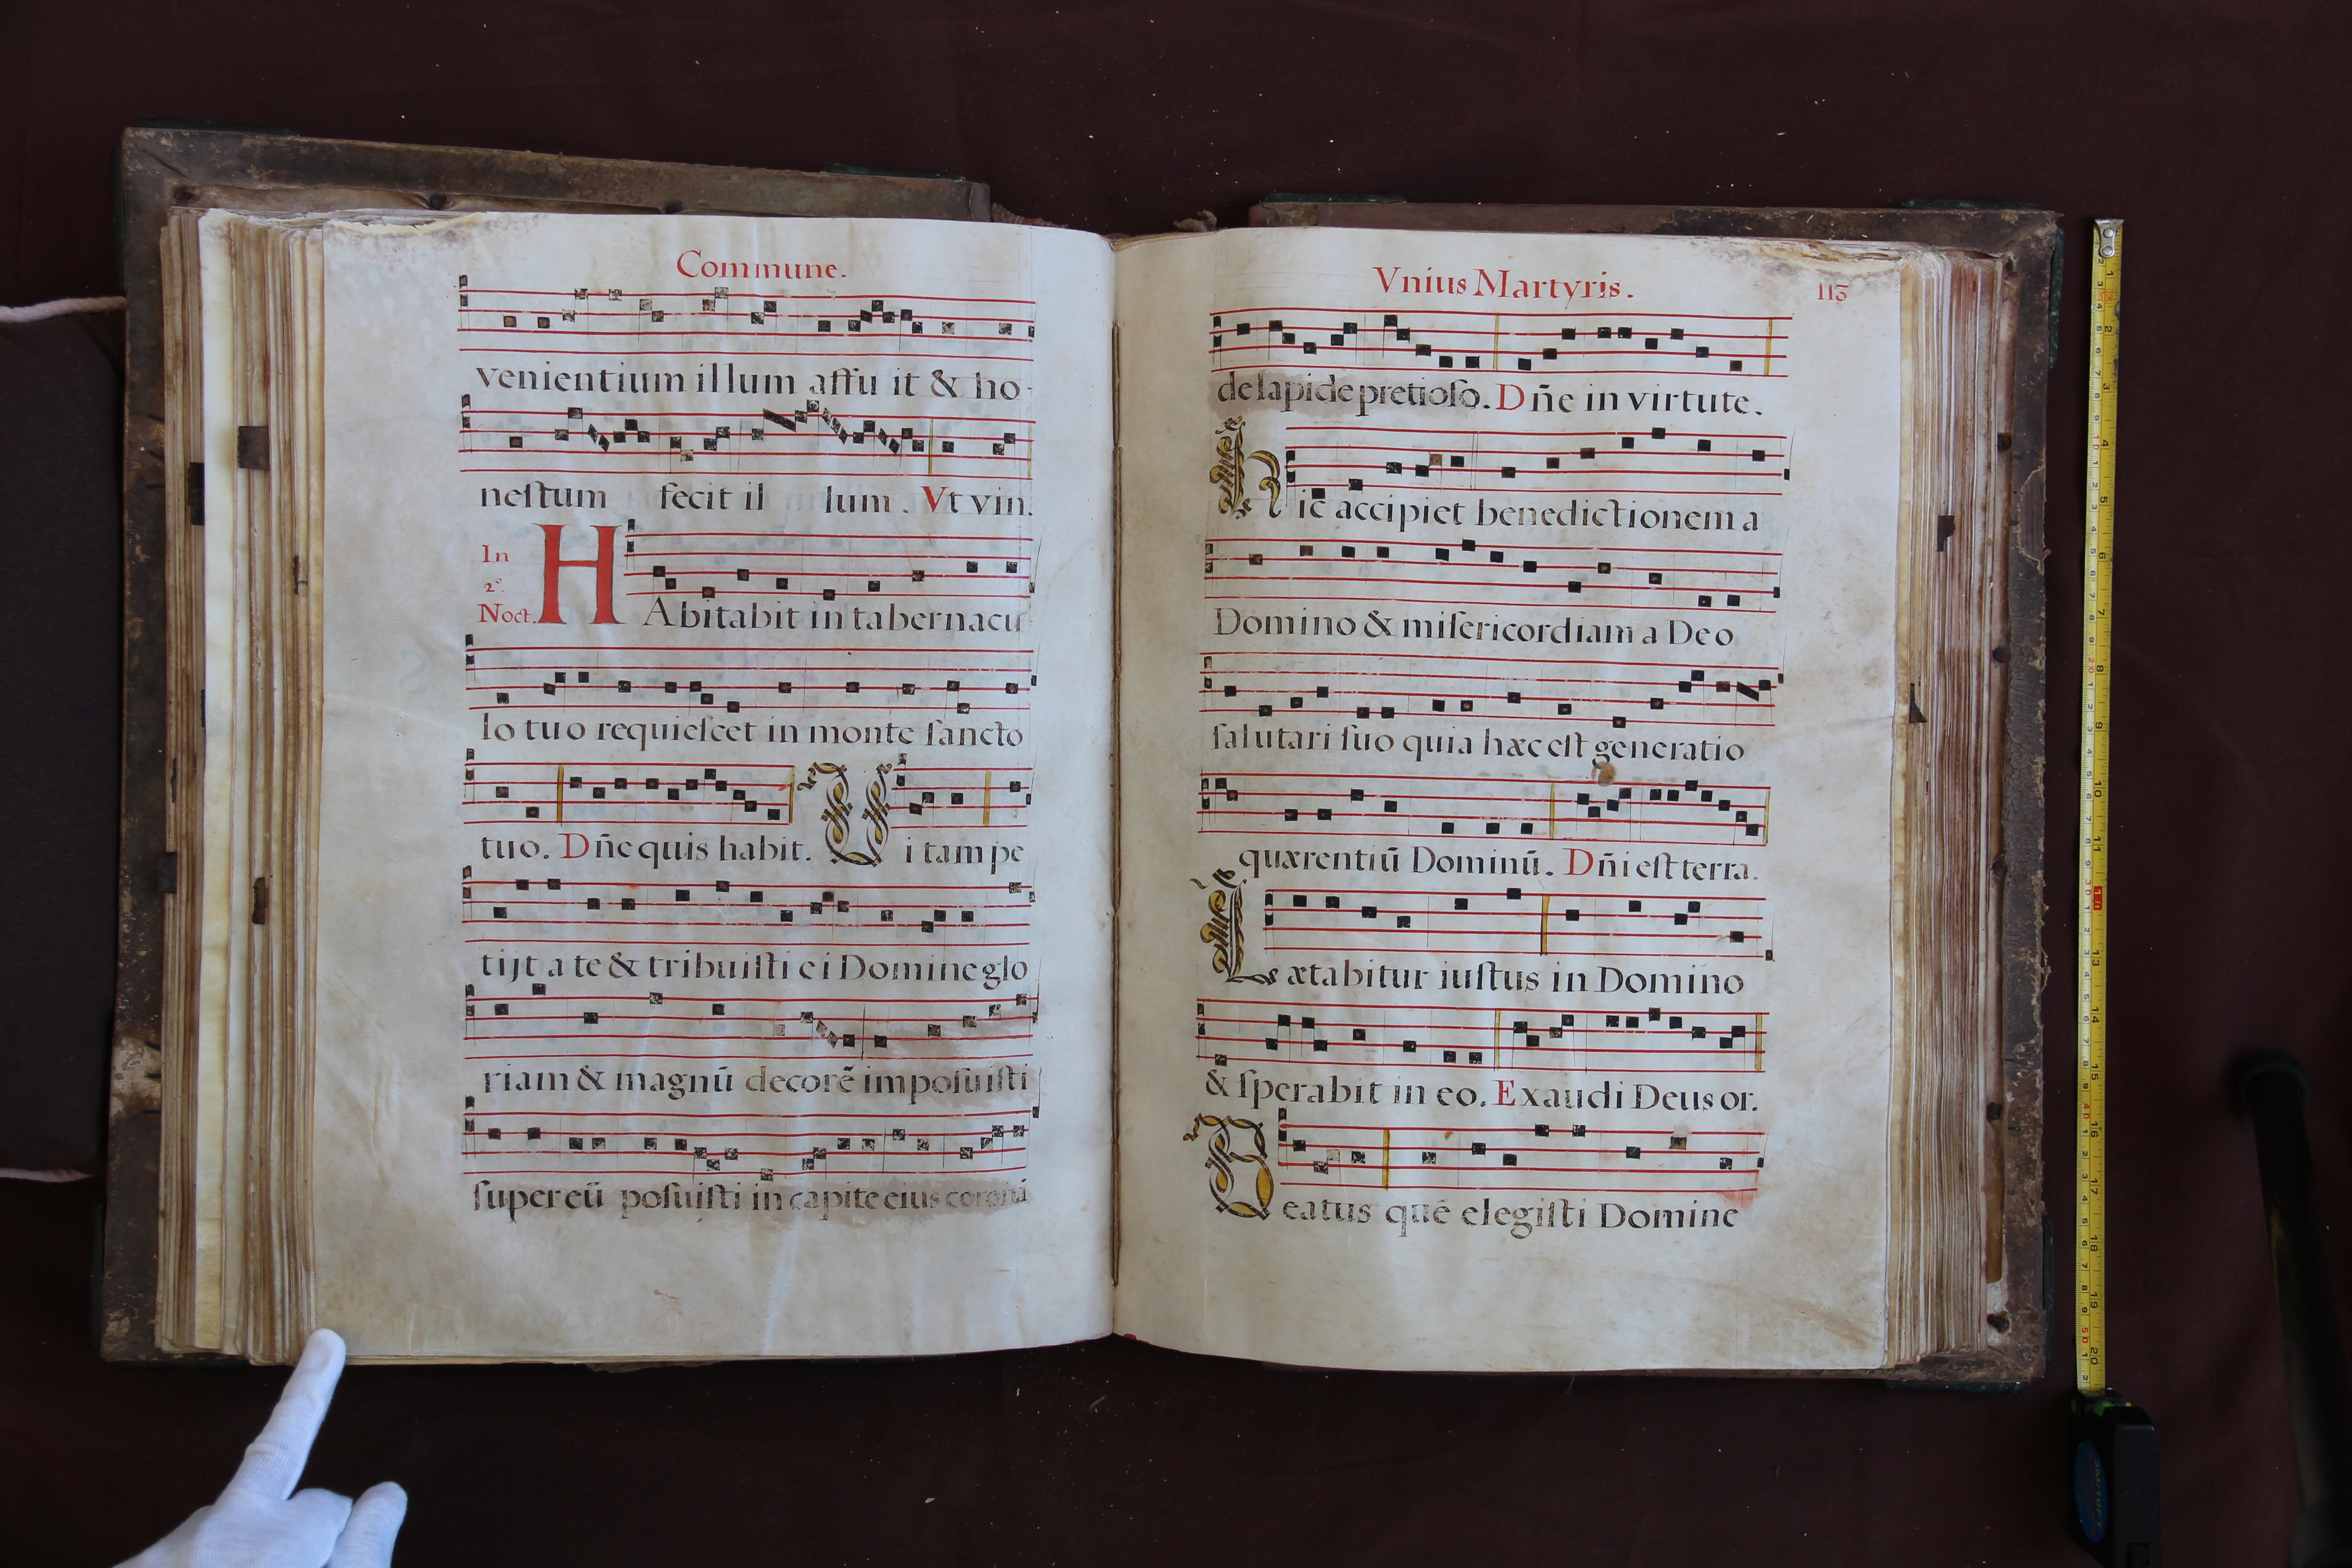 Commune.
venientium illum affu it & ho-
neſtum fecit il lum. Vt vin.
In
2º.
Noct.
HAbitabit in tabernacu
lo tuo requieſcet in monte ſancto
tuo. Dñe quis habit. Vitam pe
tijt a te & tribuiſti ei Domine glo
riam & magnū decorē impoſuiſti
ſuper eū poſuiſti in capite eius coronā
Vnius Martyris.
113
de lapide pretioſo. Dñe in virtute.
Hic accipiet benedictionem a
Domino & miſericordiam a Deo
ſalutari ſuo quia hæc eſt generatio
quærentiū Dominū. Dñi eſt terra.
Lætabitur iuſtus in Domino
& ſperabit in eo. Exaudi Deus or.
Beatus quē elegiſti Domine